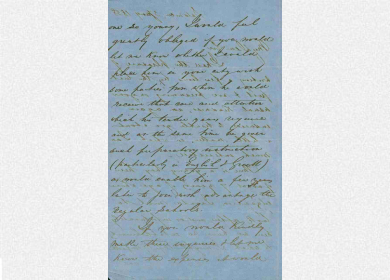 one so young, I would feel
greatly obliged if you would
let me know whether I could
place him in your city with
some parties from whom he would
receive that care and attention
which his tender years require
and at the same time be given
such preparatory instruction
(particularly in English &
as would enable him a few years
later to join with advantage the
regular schools.
If you would kindly
make these enquiries & let me
know the expense I would